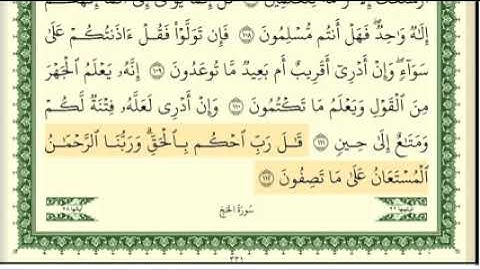 إِلَٰهٌ وَٰحِدٌ ۖ فَهَلْ أَنتُم مُّسْلِمُونَ ١٠٨ فَإِن تَوَلَّوْا۟ فَقُلْ ءَاذَنتُكُمْ عَلَىٰ
سَوَآءٍ ۖ وَإِنْ أَدْرِىٓ أَقَرِيبٌ أَم بَعِيدٌ مَّا تُوعَدُونَ ١٠٩ إِنَّهُۥ يَعْلَمُ ٱلْجَهْرَ
مِنَ ٱلْقَوْلِ وَيَعْلَمُ مَا تَكْتُمُونَ ١١٠ وَإِنْ أَدْرِى لَعَلَّهُۥ فِتْنَةٌ لَّكُمْ
وَمَتَٰعٌ إِلَىٰ حِينٍ ١١١ قَٰلَ رَبِّ ٱحْكُم بِٱلْحَقِّ ۗ وَرَبُّنَا ٱلرَّحْمَٰنُ
ٱلْمُسْتَعَانُ عَلَىٰ مَا تَصِفُونَ ١١٢
سُورَةُ الحَج
٣٣١